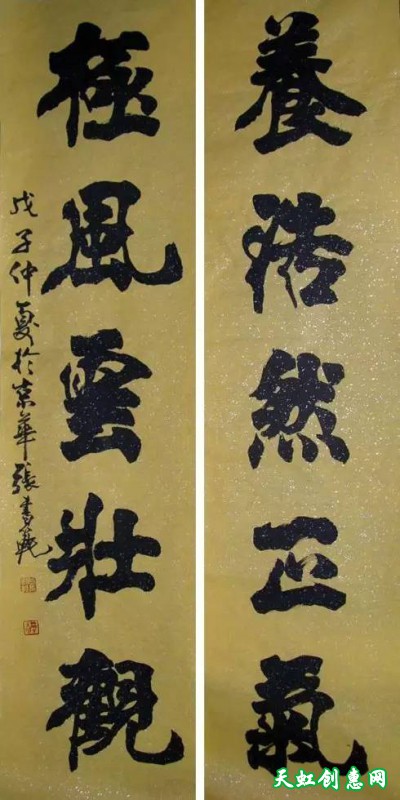 養浩然正氣
極風雲壯觀
戊子仲夏於京華張書範
天虹创惠网